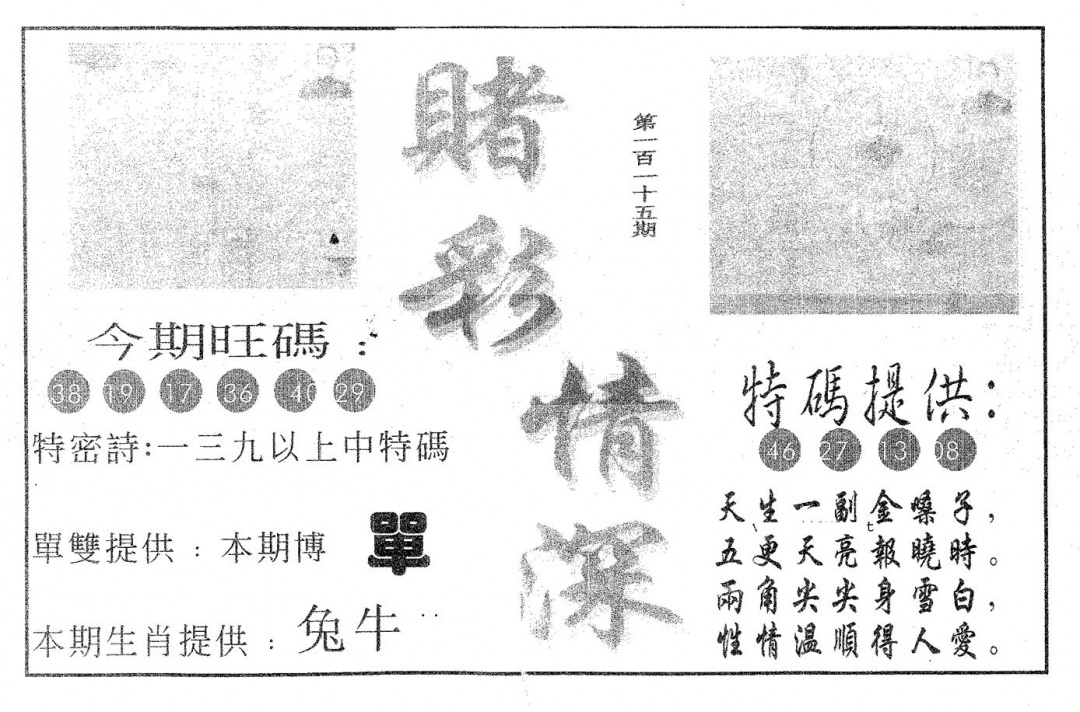 賭彩情深
第一百一十五期
今期旺碼：
38 19 17 36 40 29
特密詩:一三九以上中特碼
單雙提供：本期博 單
本期生肖提供：兔牛
特碼提供：
46 27 13 08
天生一副金嗓子，
五更天亮報曉時。
兩角尖尖身雪白，
性情溫順得人愛。